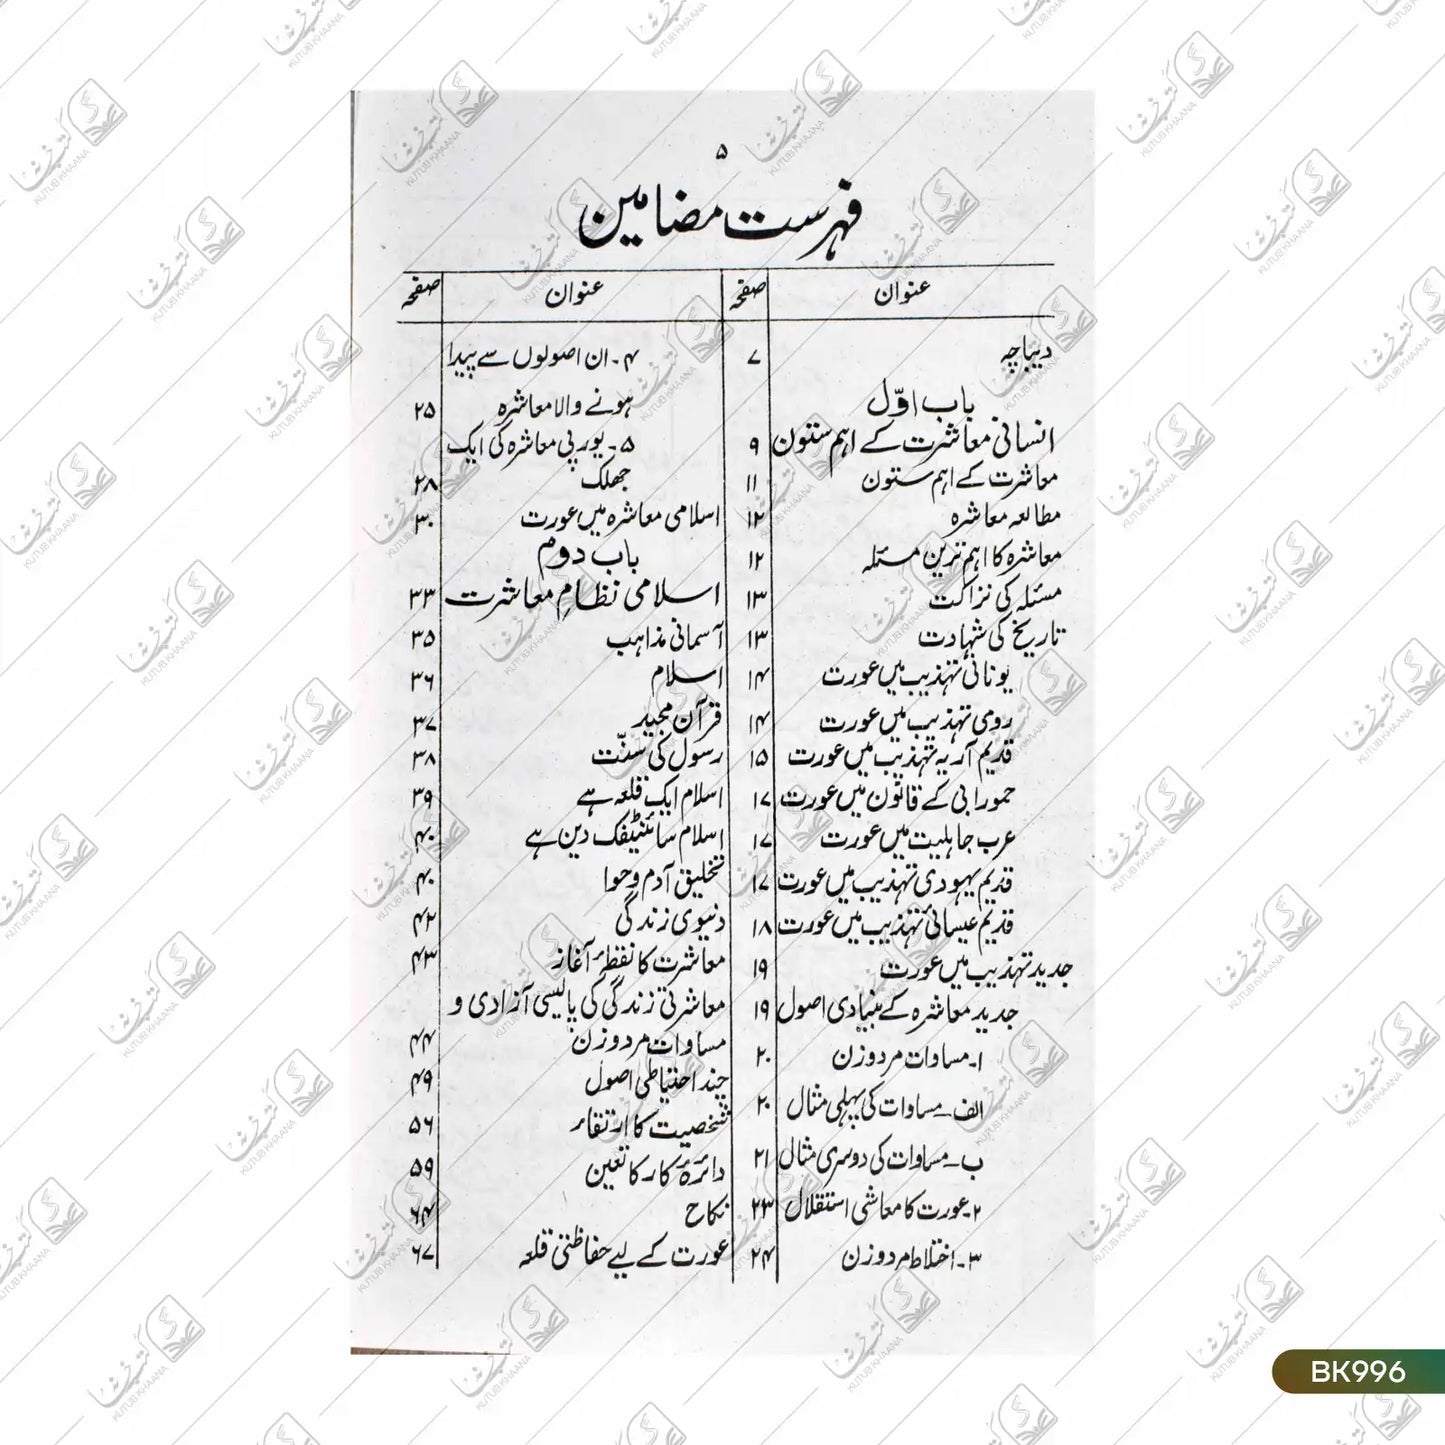 ۵
فہرست مضامین
عنوان صفحہ
دیباچہ ۷
باب اوّل
انسانی معاشرت کے اہم ستون ۹
معاشرت کے اہم ستون ۱۱
مطالعہ معاشرہ ۱۲
معاشرہ کا اہم ترین مسئلہ ۱۲
مسئلہ کی نزاکت ۱۳
تاریخ کی شہادت ۱۳
یونانی تہذیب میں عورت ۱۴
رومی تہذیب میں عورت ۱۴
قدیم آریہ تہذیب میں عورت ۱۵
حمورابی کے قانون میں عورت ۱۷
عرب جاہلیت میں عورت ۱۷
قدیم یہودی تہذیب میں عورت ۱۷
قدیم عیسائی تہذیب میں عورت ۱۸
جدید تہذیب میں عورت ۱۹
جدید معاشرہ کے بنیادی اصول ۱۹
۱۔ مساوات مرد و زن ۲۰
الف۔ مساوات کی پہلی مثال ۲۰
ب۔ مساوات کی دوسری مثال ۲۱
۲۔ عورت کا معاشی استقلال ۲۳
۳۔ اختلاط مرد و زن ۲۴
عنوان صفحہ
۴۔ ان اصولوں سے پیدا
ہونے والا معاشرہ ۲۵
۵۔ یورپی معاشرہ کی ایک
جھلک ۲۸
اسلامی معاشرہ میں عورت ۳۰
باب دوم
اسلامی نظامِ معاشرت ۳۳
آسمانی مذاہب ۳۵
اسلام ۳۶
قرآن مجید ۳۷
رسول کی سنّت ۳۸
اسلام ایک قلعہ ہے ۳۹
اسلام سائنٹیفک دین ہے ۴۰
تخلیق آدم و حوا ۴۰
دنیوی زندگی ۴۲
معاشرت کا نقطۂ آغاز ۴۳
معاشرتی زندگی کی پالیسی آزادی و
مساوات مرد و زن ۴۴
چند احتیاطی اصول ۴۹
شخصیت کا ارتقاء ۵۶
دائرۂ کار کا تعین ۵۹
نکاح ۶۴
عورت کے لیے حفاظتی قلعہ ۶۷
BK996